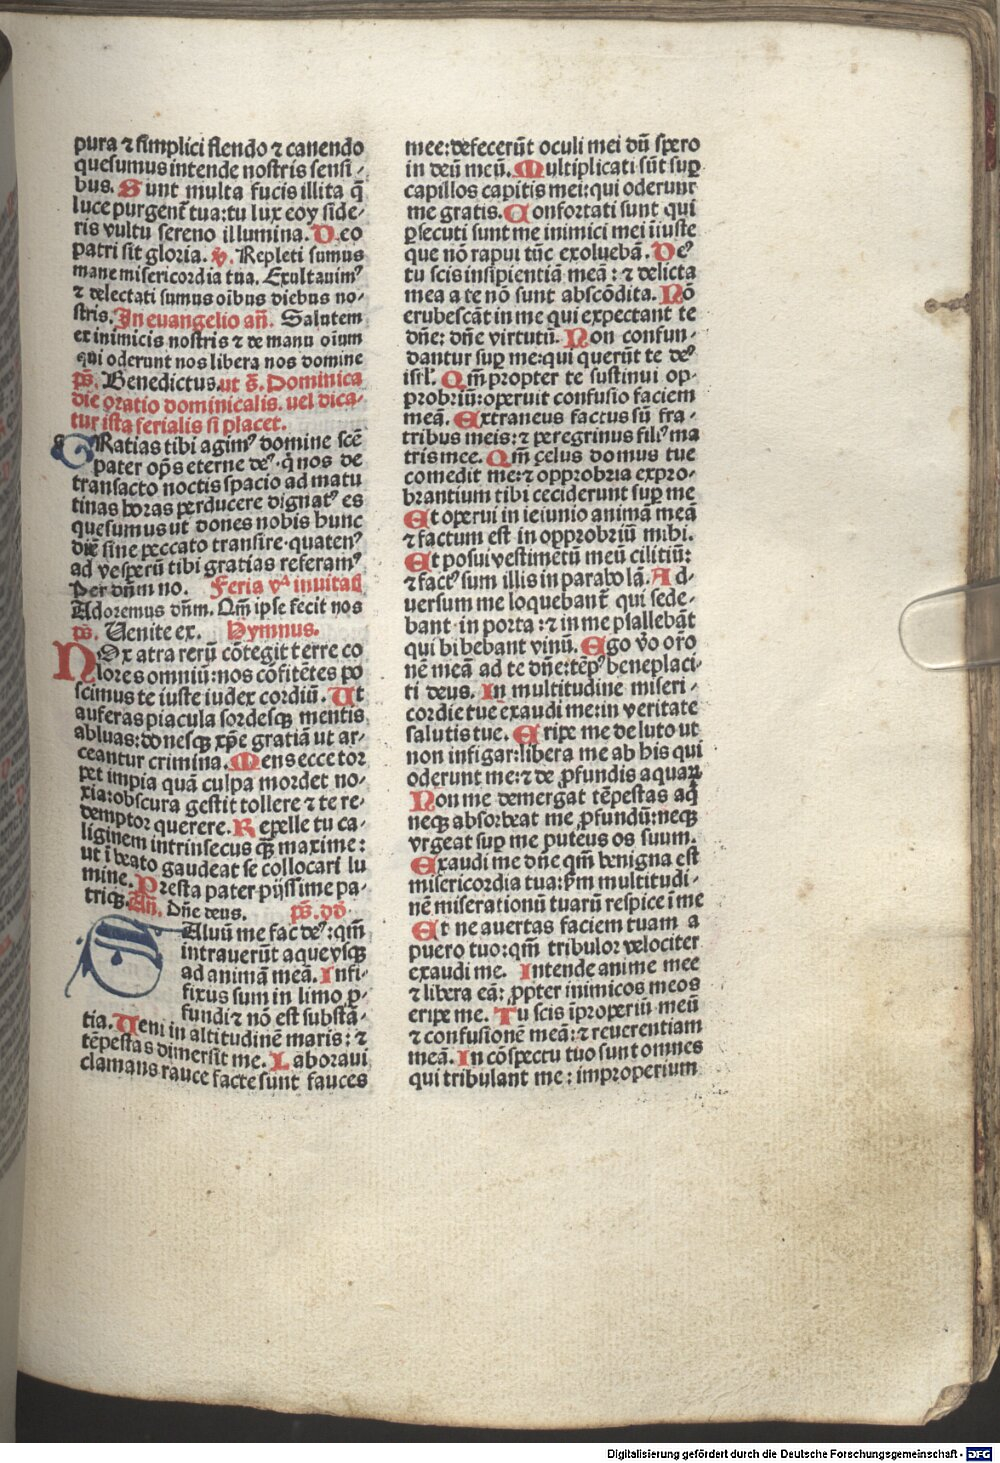 pura ⁊ simplici flendo ⁊ canendo
quesumus intende nostris sensi⸗
bus. Sunt multa fucis illita q̄
luce purgent̄ tua: tu lux eoꝝ side⸗
ris vultu sereno illumina. Deo
patri sit gloria. ℣. Repleti sumus
mane misericordia tua. Exultauimꝰ
⁊ delectati sumus oībus diebus no⸗
stris. In euangelio an̄. Salutem
ex inimicis nostris ⁊ de manu oīum
qui oderunt nos libera nos domine
ps̄. Benedictus. ut s̄. Dominica
die oratio dominicalis. uel dica⸗
tur ista ferialis si placet.
GRatias tibi agimꝰ domine scē
pater op̄s eterne deꝰ. q̇ nos de
transacto noctis spacio ad matu
tinas horas perducere dignatꝰ es
quesumus ut dones nobis hunc
diē sine peccato transire. quatenꝰ
ad vesperū tibi gratias referamꝰ
Per dn̄m no. Feria vᵃ inuitaꝉ
Adoremus dn̄m. Qm̄ ipse fecit nos
ps̄. Uenite ex. Hymnus.
NOx atra rerū cōtegit terre co
lores omniū: nos cōfitētes po
scimus te iuste iudex cordiū. Ut
auferas piacula sordesqꝫ mentis
abluas: donesqꝫ xp̄e gratiā ut ar⸗
ceantur crimina. Mens ecce tor
pet impia quā culpa mordet no⸗
xia: obscura gestit tollere ⁊ te re⸗
demptor querere. Repelle tu ca⸗
liginem intrinsecus qꝫ maxime:
ut ī beato gaudeat se collocari lu
mine. Presta pater pijssime pa⸗
triqꝫ. An̄. Dn̄e deus. ps̄. dd̄.
SAluū me fac deꝰ: qm̄
intrauerūt aque vsqꝫ
ad animā meā. Infi⸗
fixus sum in limo ꝓ⸗
fundi ⁊ nō est substā⸗
tia. Ueni in altitudinē maris: ⁊
tēpestas dimersit me. Laboraui
clamans rauce facte sunt fauces
mee: defecerūt oculi mei dū spero
in deū meū. Multiplicati sūt suꝑ
capillos capitis mei: qui oderunt
me gratis. Confortati sunt qui
ꝑsecuti sunt me inimici mei īiuste
que nō rapui tūc exoluebā. Deꝰ
tu scis insipientiā meā: ⁊ delicta
mea a te nō sunt abscōdita. Nō
erubescāt in me qui expectant te
dn̄e: dn̄e virtutū. Non confun⸗
dantur suꝑ me: qui querūt te deꝰ
isrl̄. Qm̄ propter te sustinui op⸗
probriū: operuit confusio faciem
meā. Extraneus factus sū fra⸗
tribus meis: ⁊ peregrinus filiꝰ ma
tris mee. Qm̄ çelus domus tue
comedit me: ⁊ opprobria expro⸗
brantium tibi ceciderunt suꝑ me
Et operui in ieiunio animā meā
⁊ factum est in opprobriū mihi.
Et posui vestimetū meū ciliciū:
⁊ factꝰ sum illis in parabolā. Ad⸗
uersum me loquebant̄ qui sede⸗
bant in porta: ⁊ in me psallebāt
qui bibebant vinū. Ego v̄o oro̅
nē meā ad te dn̄e: tēpꝰ beneplaci⸗
ti deus. In multitudine miseri⸗
cordie tue exaudi me: in veritate
salutis tue. Eripe me de luto ut
non infigar: libera me ab his qui
oderunt me: ⁊ de ꝓfundis aquaꝝ
Non me demergat tēpestas aq̄
neqꝫ absorbeat me ꝓfundū: neqꝫ
vrgeat suꝑ me puteus os suum.
Exaudi me dn̄e qm̄ benigna est
misericordia tua: s̄m multitudi⸗
nē miserationū tuarū respice ī me
Et ne auertas faciem tuam a
puero tuo: qm̄ tribulor velociter
exaudi me. Intende anime mee
⁊ libera eā: ꝓpter inimicos meos
eripe me. Tu scis īproperiū meū
⁊ confusionē meā: ⁊ reuerentiam
meā. In cōspectu tuo sunt omnes
qui tribulant me: improperium
Digitalisierung gefördert durch die Deutsche Forschungsgemeinschaft - DFG